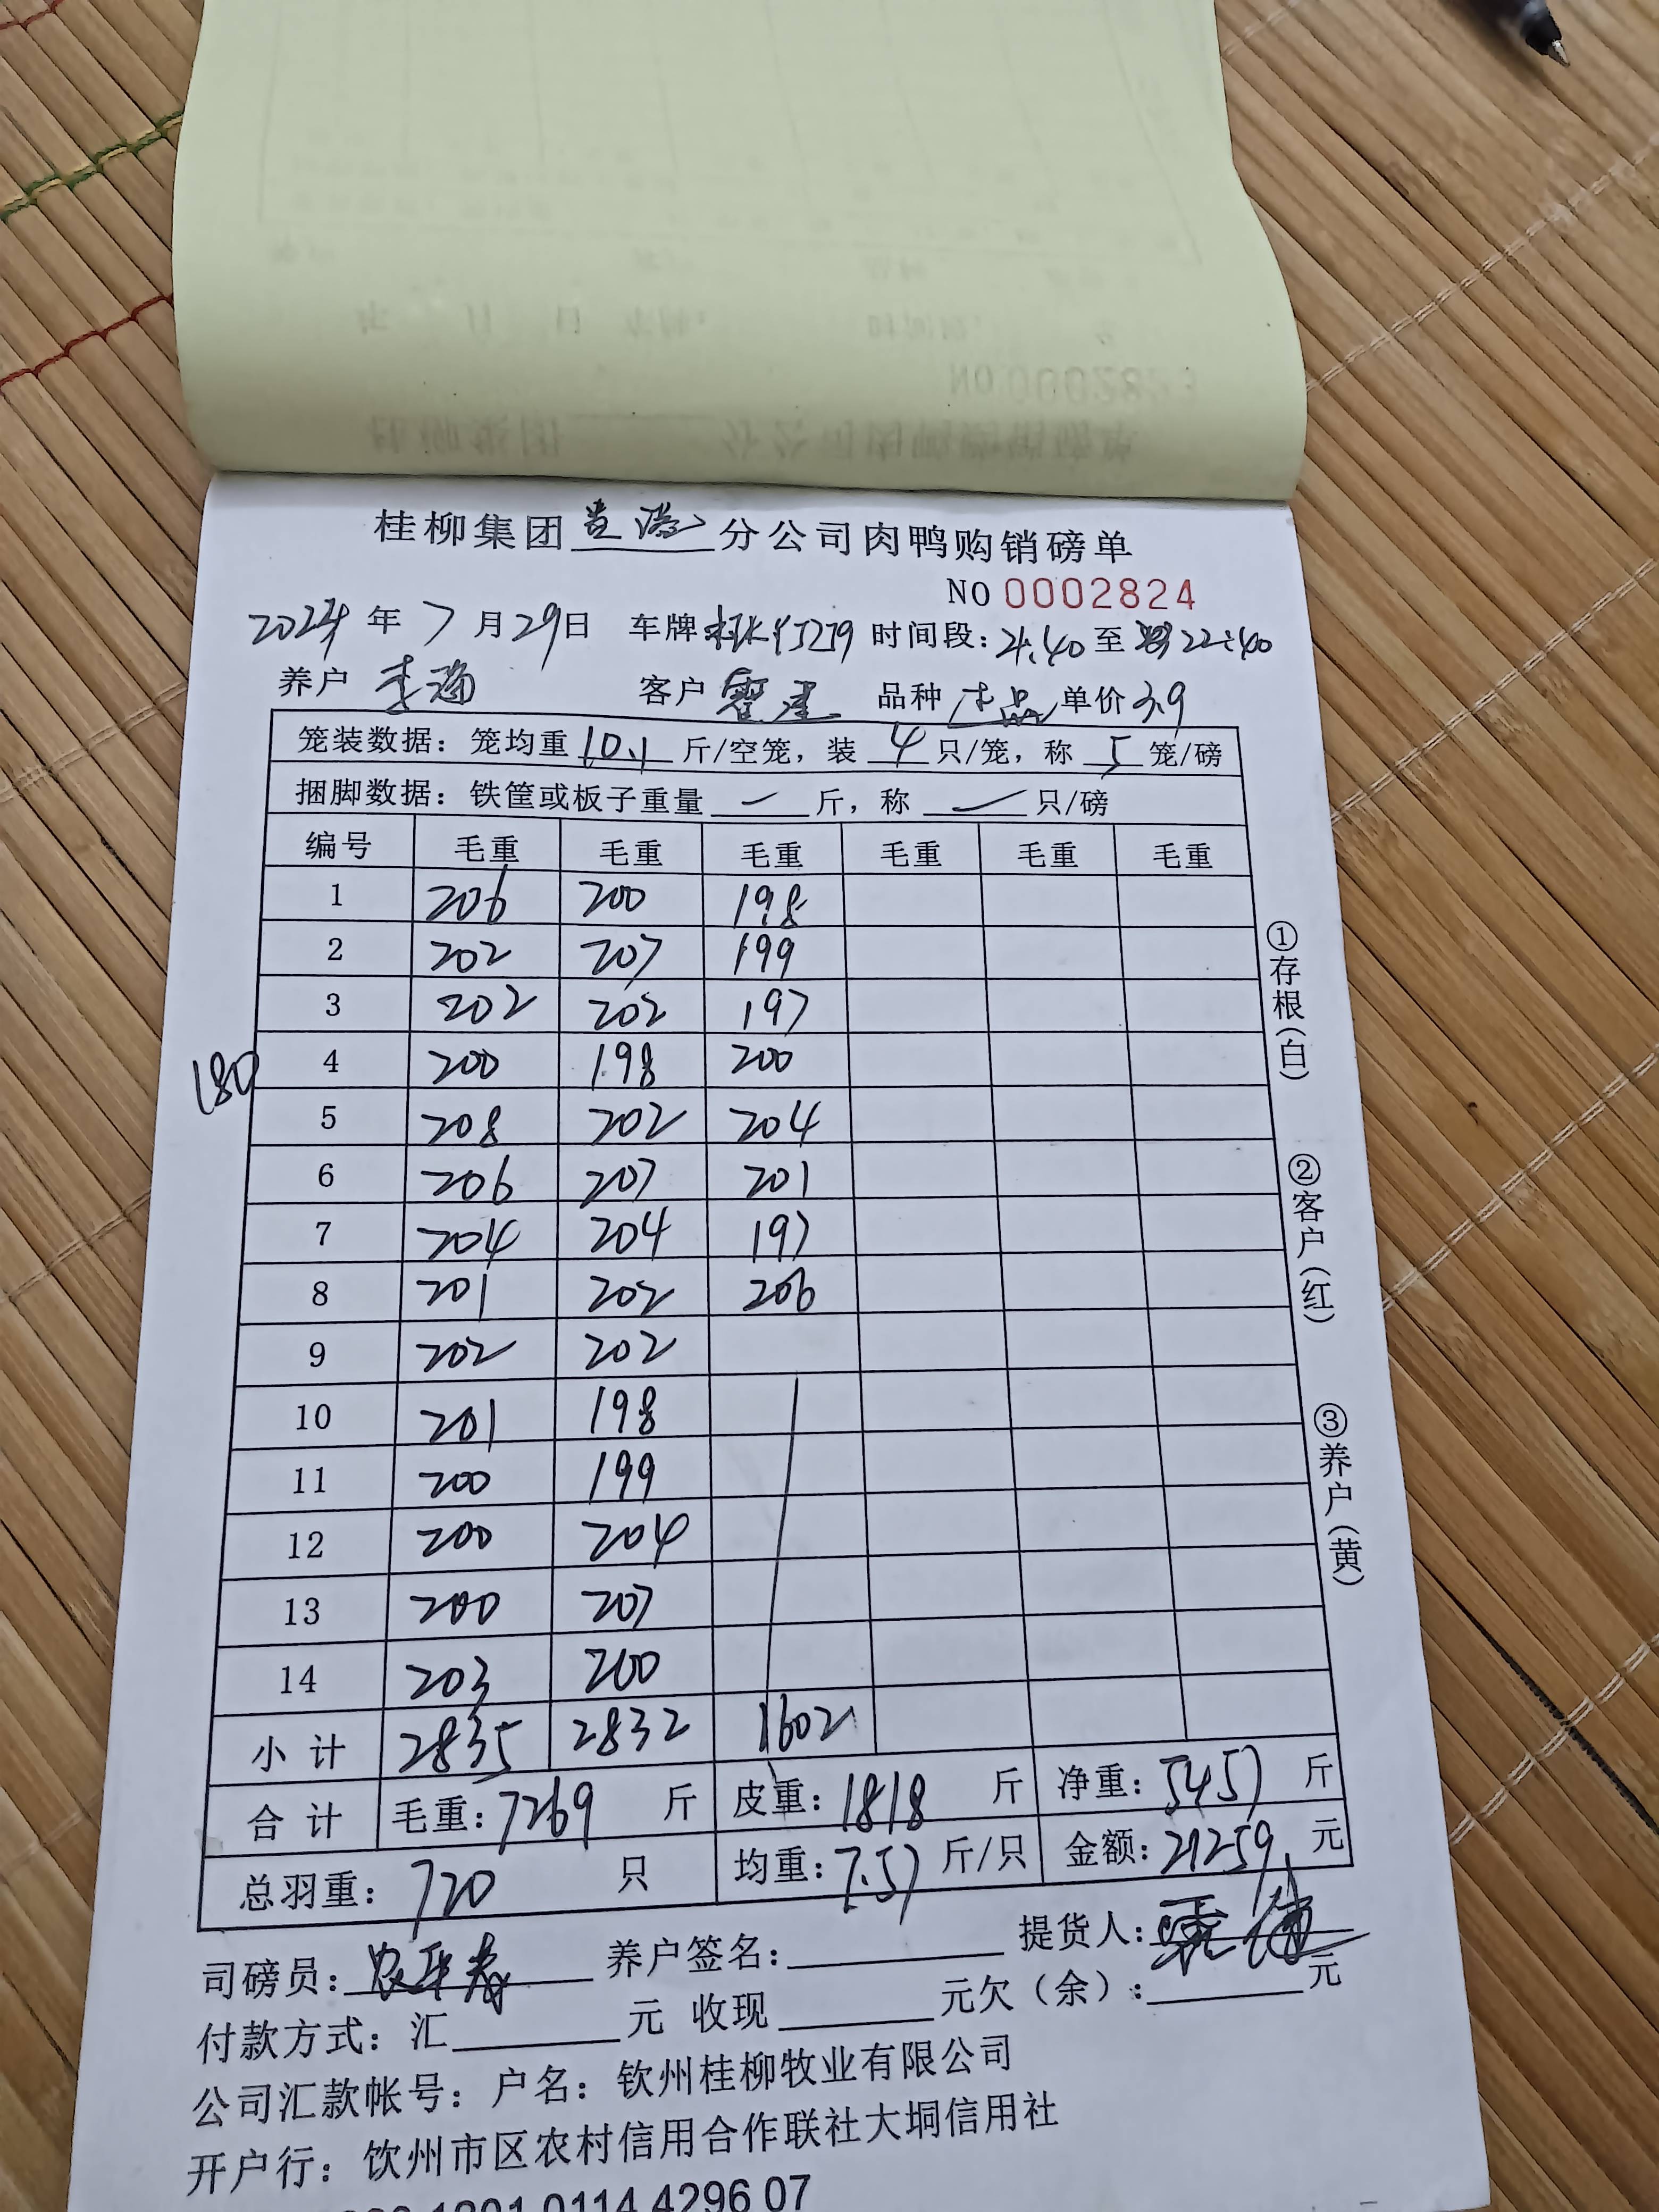 桂柳集团贵港分公司肉鸭购销磅单
NO 0002824
2024年7月29日 车牌 时间段：21:40至22:40
养户 李海 客户 品种 单价3.9
笼装数据：笼均重10.1斤/空笼，装4只/笼，称5笼/磅
捆脚数据：铁筐或板子重量 — 斤，称 — 只/磅
编号 毛重 毛重 毛重 毛重 毛重 毛重
1 206 200 198
2 202 207 199
3 202 202 197
4 200 198 200
5 208 202 204
6 206 207 201
7 204 204 197
8 201 202 206
9 202 202
10 201 198
11 200 199
12 200 204
13 200 207
14 203 200
小计 2835 2832 1602
合计 毛重：7269 斤 皮重：1818 斤 净重：5457 斤
总羽重：720 只 均重：7.57 斤/只 金额：21259 元
180
①存根（白）
②客户（红）
③养户（黄）
司磅员： 养户签名： 提货人：
付款方式：汇 元 收现 元欠（余）： 元
公司汇款帐号：户名：钦州桂柳牧业有限公司
开户行：钦州市区农村信用合作联社大垌信用社
0114 4296 07